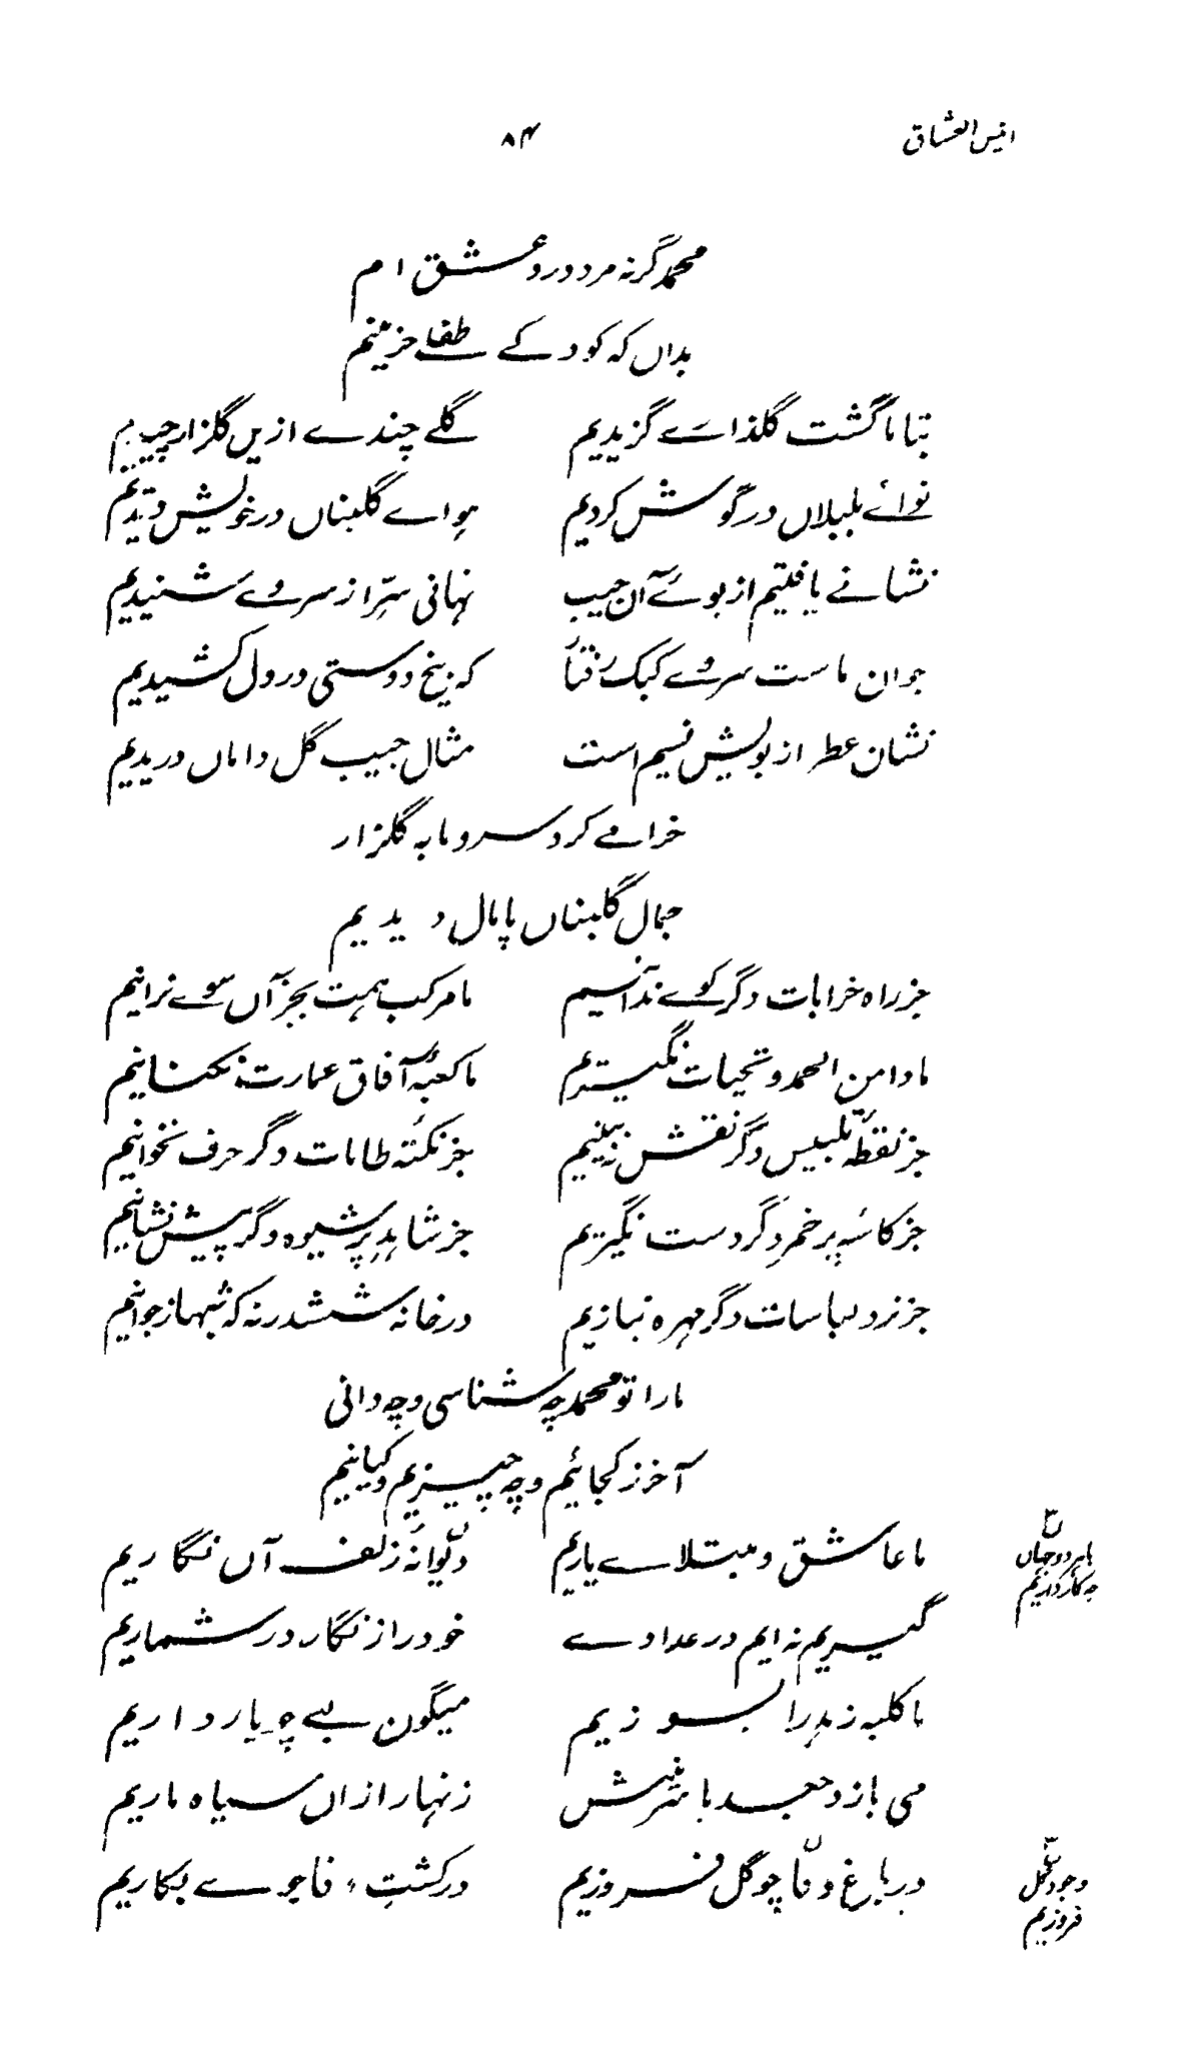 انیس العشاق ۸۴
محمد گر نہ مرد درد عشق ام
بداں کہ کودکے طفلے حزینم
بتا ما گشت گلذارے گزیدیم گلے چندے ازیں گلزار چیدیم
نوائے بلبلاں در گوش کردیم ہوائے گلبناں در خویش دیدیم
نشانے یافتیم از بوئے آن جیب نہانی سرّ از سروے شنیدیم
جوان ماست سروے کبک رفتار کہ بیخ دوستی در دل کشیدیم
نشان عطر از بویش نسیم است مثال جیب گل داماں دریدیم
خرامے کرد سرو ما بہ گلزار
جمال گلبناں پامال دیدیم
جز راہ خرابات دگر کوے ندانیم ما مرکب ہمت بجز آں سوے نرانیم
ما دامن الحمد و تحیات نگیریم ما کعبۂ آفاق عمارت نکنانیم
جز نقطۂ تلبیس دگر نقش نہ بینیم جز نکتۂ طامات دگر حرف نخوانیم
جز کاسۂ پر خمر دگر دست نگیریم جز شاہد پر شیوہ دگر پیش نشانیم
جز نرد لباسات دگر مہرہ نبازیم در خانہ ششدر نہ کہ شہباز جوانیم
ما را تو محمد چہ شناسی و چہ دانی
آخر ز کجائیم و چہ چیزیم و کیانیم
ما عاشق و مبتلاے یاریم دیوانۂ زلف آں نگاریم
با ہر دو جہاں
چہ کار داریم
گیریم نہ ایم در عدادے خود را ز نگار در شماریم
ما کلبہ زہد را بسوزیم میگون لبے چو یار داریم
می بازد جعد با سرینش زنہار ازاں سیاہ ماریم
در باغ وفا چو گل فروزیم در کشت وفا جوے بکاریم
وجود گل
فروزیم